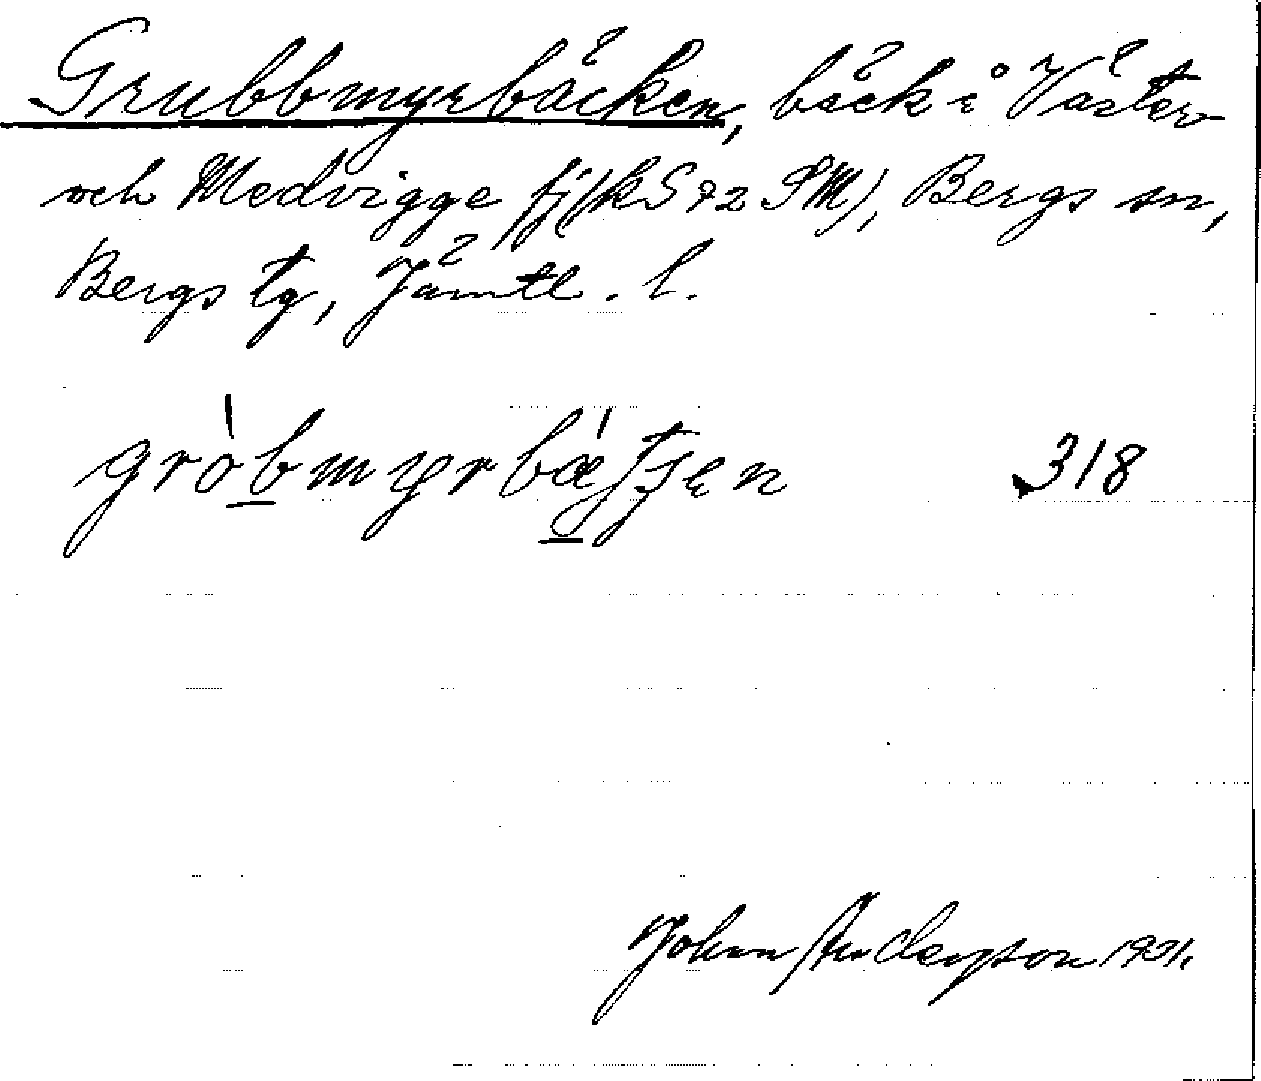 Grubbmyrbäcken, bäck i Väster
och Medvigge fj (k S 72 SM), Bergs sn,
Bergs tg, Jämtl. l.
gròbmyrbæ̀tʃen 318
John Anderson 1931.